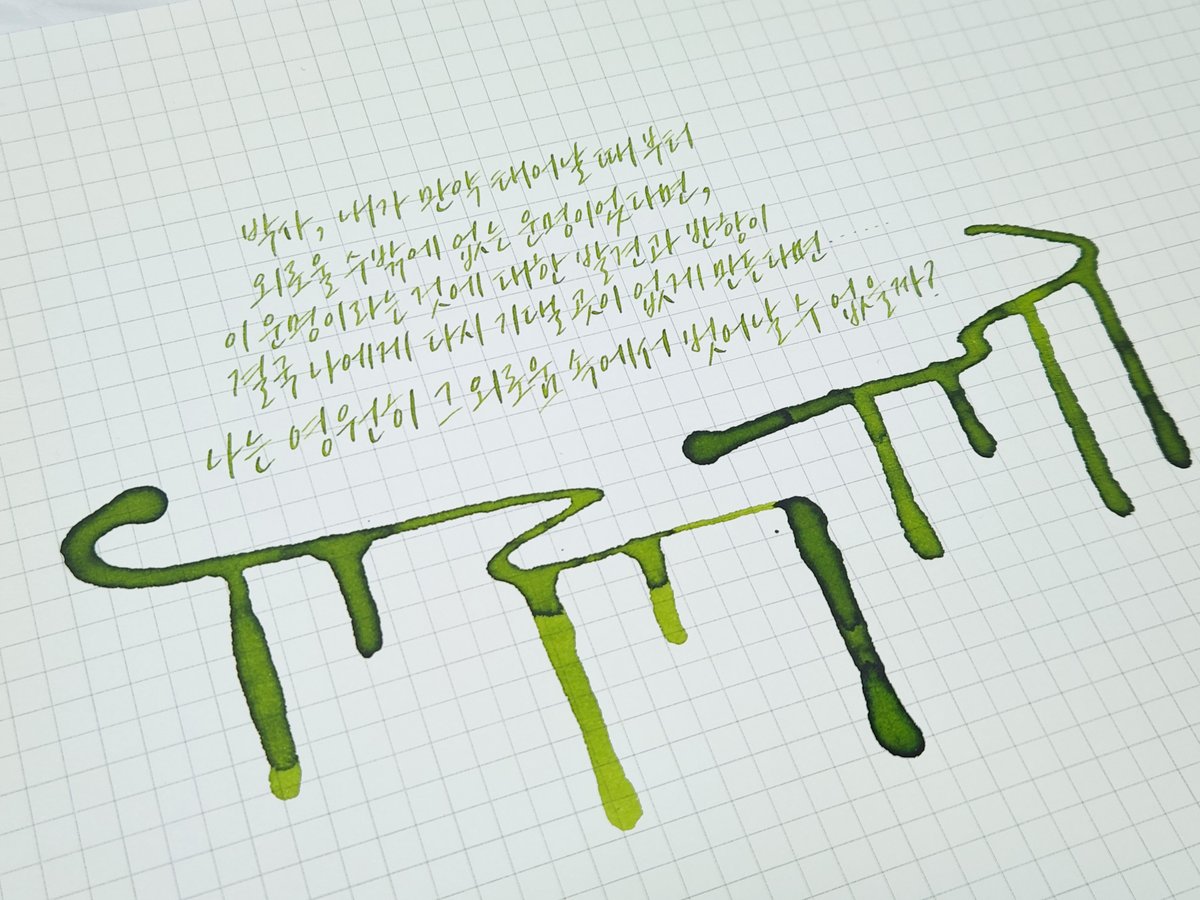 박사, 내가 만약 태어날 때부터
외로울 수밖에 없는 운명이었다면,
이 운명이라는 것에 대한 발견과 반항이
결국 나에게 다시 기댈 곳이 없게 만든다면……
나는 영원히 그 외로움 속에서 벗어날 수 없을까?